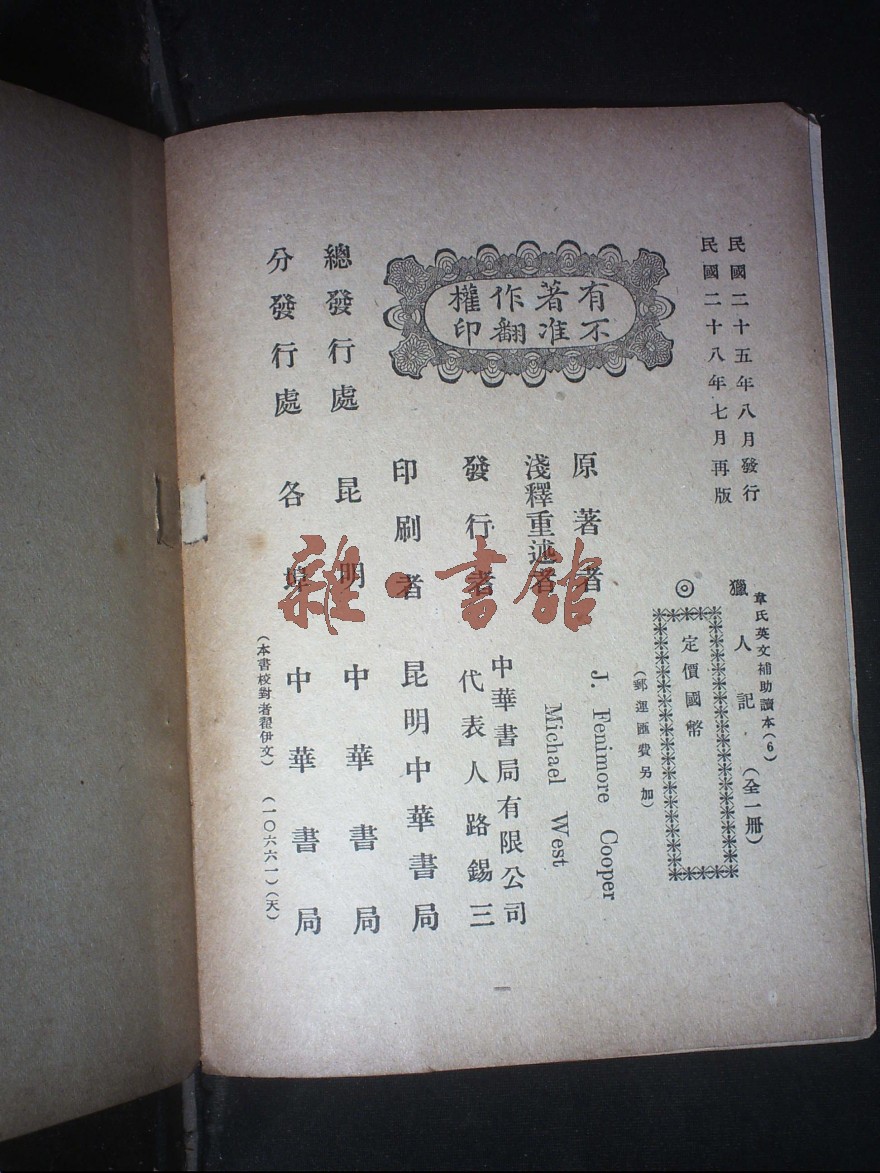 民國二十五年八月發行
民國二十八年七月再版
韋氏英文補助讀本(6)
獵人記(全一冊)
◎定價國幣
(郵運匯費另加)
有著作權
不准翻印
原著者 J. Fenimore Cooper
淺釋重述者 Michael West
發行者 中華書局有限公司
代表人路錫三
印刷者 昆明中華書局
總發行處 昆明 中華書局
分發行處 各埠 中華書局
(本書校對者翟伊文)(一〇六六一)(天)
雜·書館